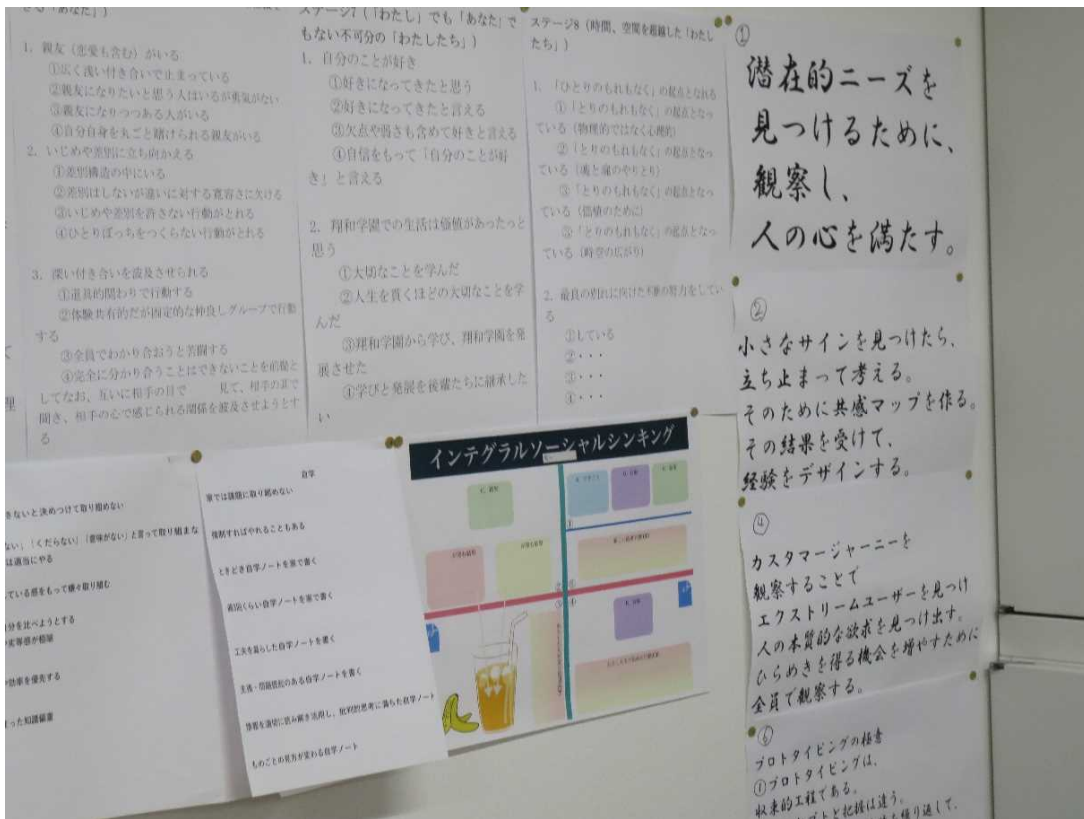 きる「あなた」）
1. 親友（恋愛も含む）がいる
①広く浅い付き合いで止まっている
②親友になりたいと思う人はいるが勇気がない
③親友になりつつある人がいる
④自分自身を丸ごと賭けられる親友がいる
2. いじめや差別に立ち向かえる
①差別構造の中にいる
②差別はしないが違いに対する寛容さに欠ける
③いじめや差別を許さない行動がとれる
④ひとりぼっちをつくらない行動がとれる
3. 深い付き合いを波及させられる
①道具的関わりで行動する
②体験共有的だが固定的な仲良しグループで行動
する
③全員でわかり合おうと苦闘する
④完全に分かり合うことはできないことを前提と
してなお、互いに相手の目で 見て、相手の耳で
聞き、相手の心で感じられる関係を波及させようとす
る
ステージ7（「わたし」でも「あなた」で
もない不可分の「わたしたち」）
1. 自分のことが好き
①好きになってきたと思う
②好きになってきたと言える
③欠点や弱さも含めて好きと言える
④自信をもって「自分のことが好
き」と言える
2. 翔和学園での生活は価値があったっと
思う
①大切なことを学んだ
②人生を貫くほどの大切なことを学
んだ
③翔和学園から学び、翔和学園を発
展させた
④学びと発展を後輩たちに継承した
い
ステージ8（時間、空間を超越した「わたし
たち」）
1. 「ひとりのもれもなく」の起点となれる
①「とりのもれもなく」の起点となっ
ている（物理的ではなく心理的）
②「とりのもれもなく」の起点となっ
ている（魂と魂のやりとり）
③「とりのもれもなく」の起点となっ
ている（価値のために）
「とりのもれもなく」の起点となっ
ている（時空の広がり）
2. 最良の別れに向けた不断の努力をしてい
る
①している
②・・・
③・・・
④・・・
①
潜在的ニーズを
見つけるために、
観察し、
人の心を満たす。
②
小さなサインを見つけたら、
立ち止まって考える。
そのために共感マップを作る。
その結果を受けて、
経験をデザインする。
④
カスタマージャーニーを
観察することで
エクストリームユーザーを見つけ
人の本質的な欲求を見つけ出す。
ひらめきを得る機会を増やすために
全員で観察する。
⑥
プロトタイピングの極意
①プロトタイピングは、
収束的工程である。
と把握は違う。
繰り返して、
きないと決めつけて取り組めない
ない」「くだらない」「意味がない」と言って取り組まな
は適当にやる
ている感をもって嫌々取り組む
分を比べようとする
劣等感が極端
効率を優先する
まった知識偏重
自学
家では課題に取り組めない
強制すればやれることもある
ときどき自学ノートを家で書く
週1回くらい自学ノートを家で書く
工夫を凝らした自学ノートを書く
主張・問題提起のある自学ノートを書く
情報を適切に読み解き活用し、批判的思考に満ちた自学ノート
ものごとの見方が変わる自学ノート
インテグラルソーシャルシンキング